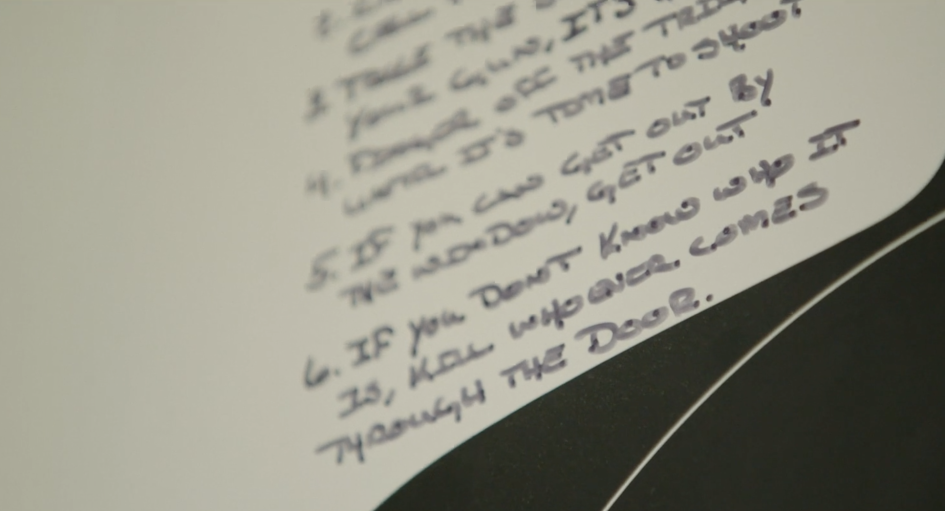 CALL
3. TAKE THE
YOUR GUN, IT'S
4. FINGER OFF THE
UNTIL IT'S TIME TO SHOOT
5. IF YOU CAN GET OUT BY
THE WINDOW, GET OUT
6. IF YOU DON'T KNOW WHO IT
IS, KILL WHOEVER COMES
THROUGH THE DOOR.